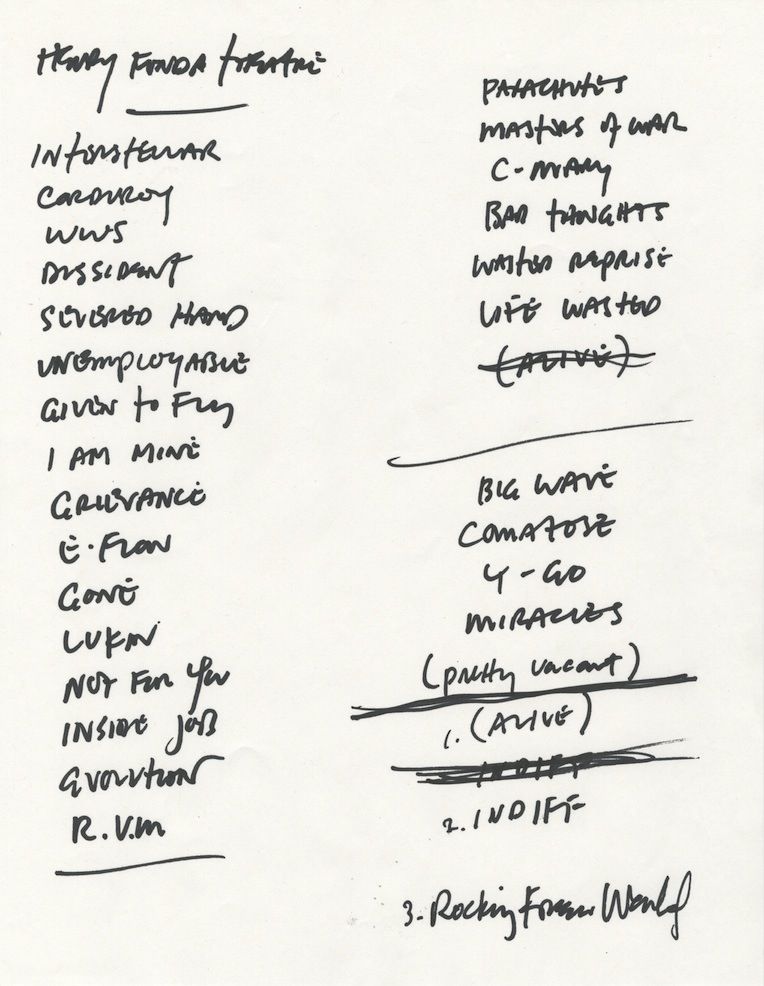 HENRY FONDA THEATRE
INTERSTELLAR
CORDUROY
WWS
DISSIDENT
SEVERED HAND
UNEMPLOYABLE
GIVEN to FLY
I AM MINE
GRIEVANCE
E. FLOW
GONE
LUKIN
NOT FOR YOU
INSIDE JOB
EVOLUTION
R.V.M
PARACHUTES
MASTERS of WAR
C-MARY
BAD THOUGHTS
WASTED REPRISE
LIFE WASTED
(ALIVE)
BIG WAVE
COMATOSE
Y-GO
MIRACLES
(pretty vacant)
1. (ALIVE)
INDIFF
2. INDIFF
3. Rocking Free World